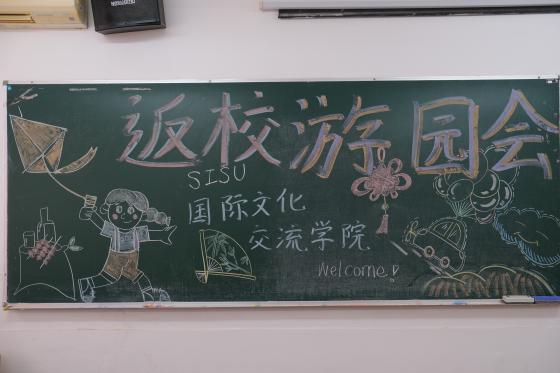 返校游园会
SISU
国际文化
交流学院
Welcome